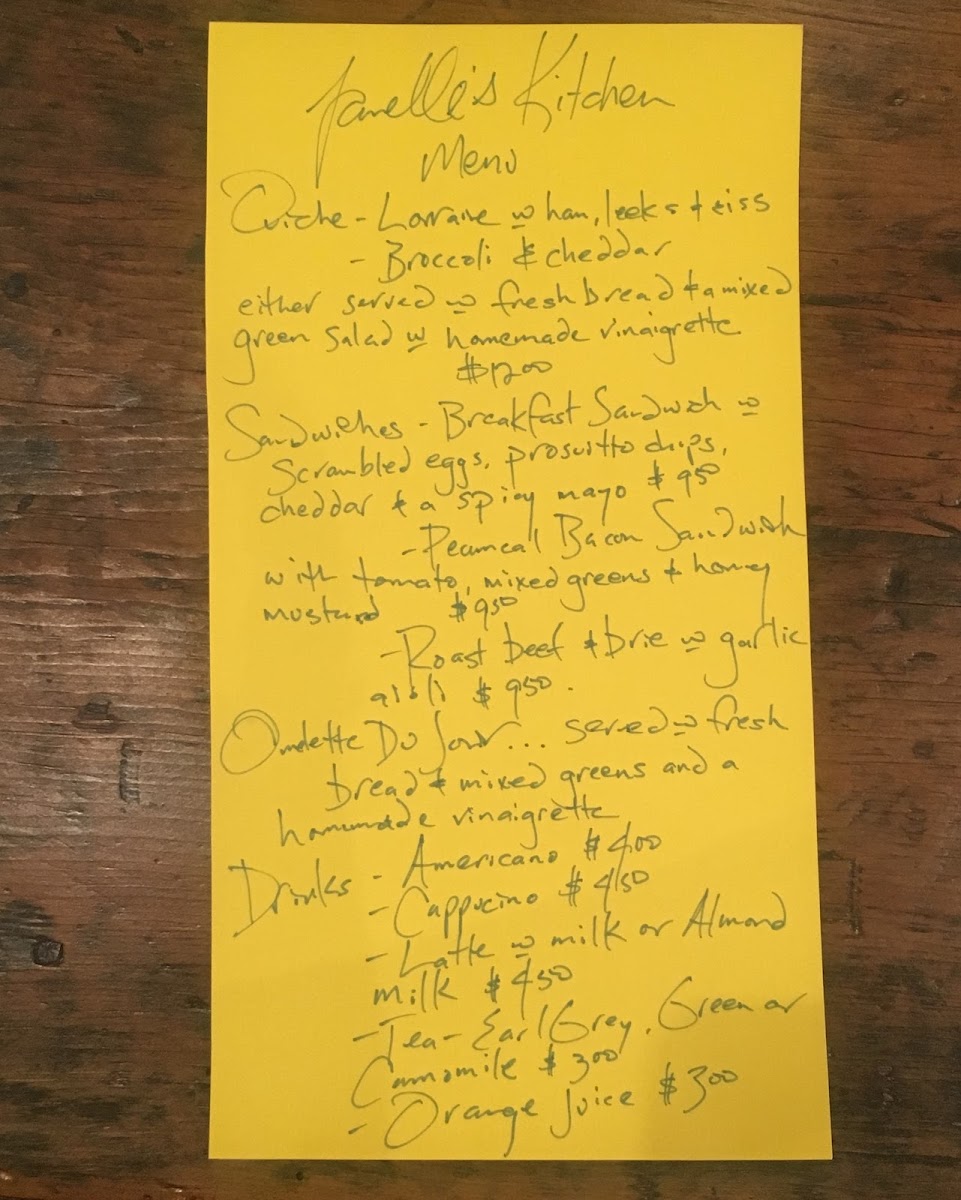 Janelle's Kitchen
Menu
Quiche - Lorraine w ham, leeks & swiss
- Broccoli & cheddar
either served w fresh bread & a mixed
green salad w homemade vinaigrette
$1200
Sandwiches - Breakfast Sandwich w
Scrambled eggs, prosuitto chips,
cheddar & a spicy mayo $950
- Peameal Bacon Sandwich
with tomato, mixed greens & honey
mustard $950
- Roast beef & brie w garlic
aioli $950.
Omelette Du Jour... served w fresh
bread & mixed greens and a
homemade vinaigrette
Drinks - Americano $400
- Cappucino $450
- Latte w milk or Almond
milk $450
- Tea - Earl Grey, Green or
Camomile $300
- Orange juice $300